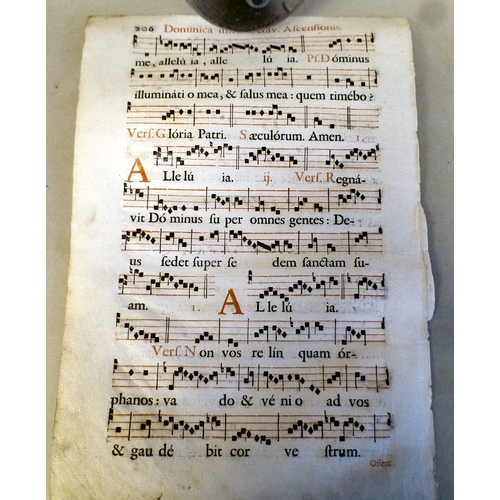 206 Dominica infra Octav. Ascensionis.
me, allelú ia, alle lú ia. Ps. Dóminus
illumináti o mea, & salus mea : quem timébo?
Vers. Glória Patri. Sæculórum. Amen.
A Lle lú ia. ij. Vers. Regná-
vit Dó minus su per omnes gentes : De-
us sedet super se dem sanctam su-
am. 1. A Lle lú ia.
Vers. Non vos re lín quam ór-
phanos : va do & vé ni o ad vos
& gau dé bit cor ve strum.